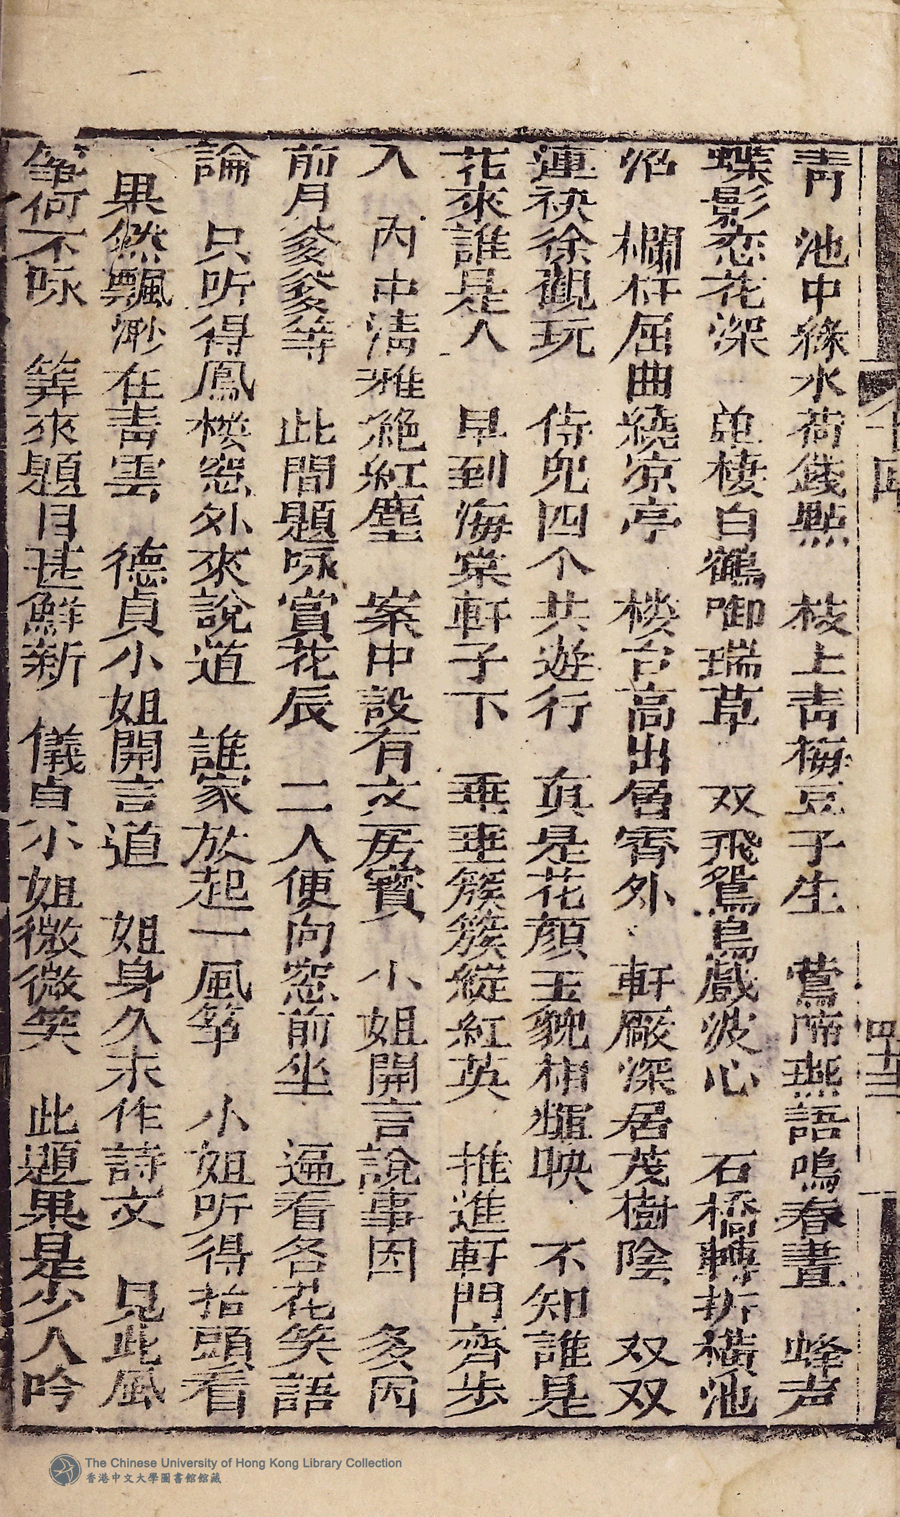 青　池中綠水荷錢點　枝上青梅豆子生　鶯啼燕語鳴春晝　蜂声
蝶影恋花深　並棲白鶴啣瑞草　双飛鴛鳥戲波心　石橋轉折橫池
沼　欄杆屈曲繞凉亭　楼台高出層霄外　軒廠深居茂樹陰　双双
連袂徐觀玩　侍兒四个共遊行　真是花顔玉貌相輝映　不知誰是
花來誰是人　早到海棠軒子下　垂垂簇簇綻紅英　推進軒門齊步
入　內中清雅絶紅塵　案中設有文房寶　小姐開言說事因　多因
前月爹爹等　此間題咏賞花辰　二人便向窓前坐　逼看各花笑語
論　只听得鳳楼窓外來說道　誰家放起一風筝　小姐听得抬頭看
果然飄渺在青雲　德貞小姐開言道　姐身久未作詩文　見此風
筝何不咏　筭來題目甚鮮新　儀貞小姐微微笑　此題果是少人吟
四十三
The Chinese University of Hong Kong Library Collection
香港中文大學圖書館館藏